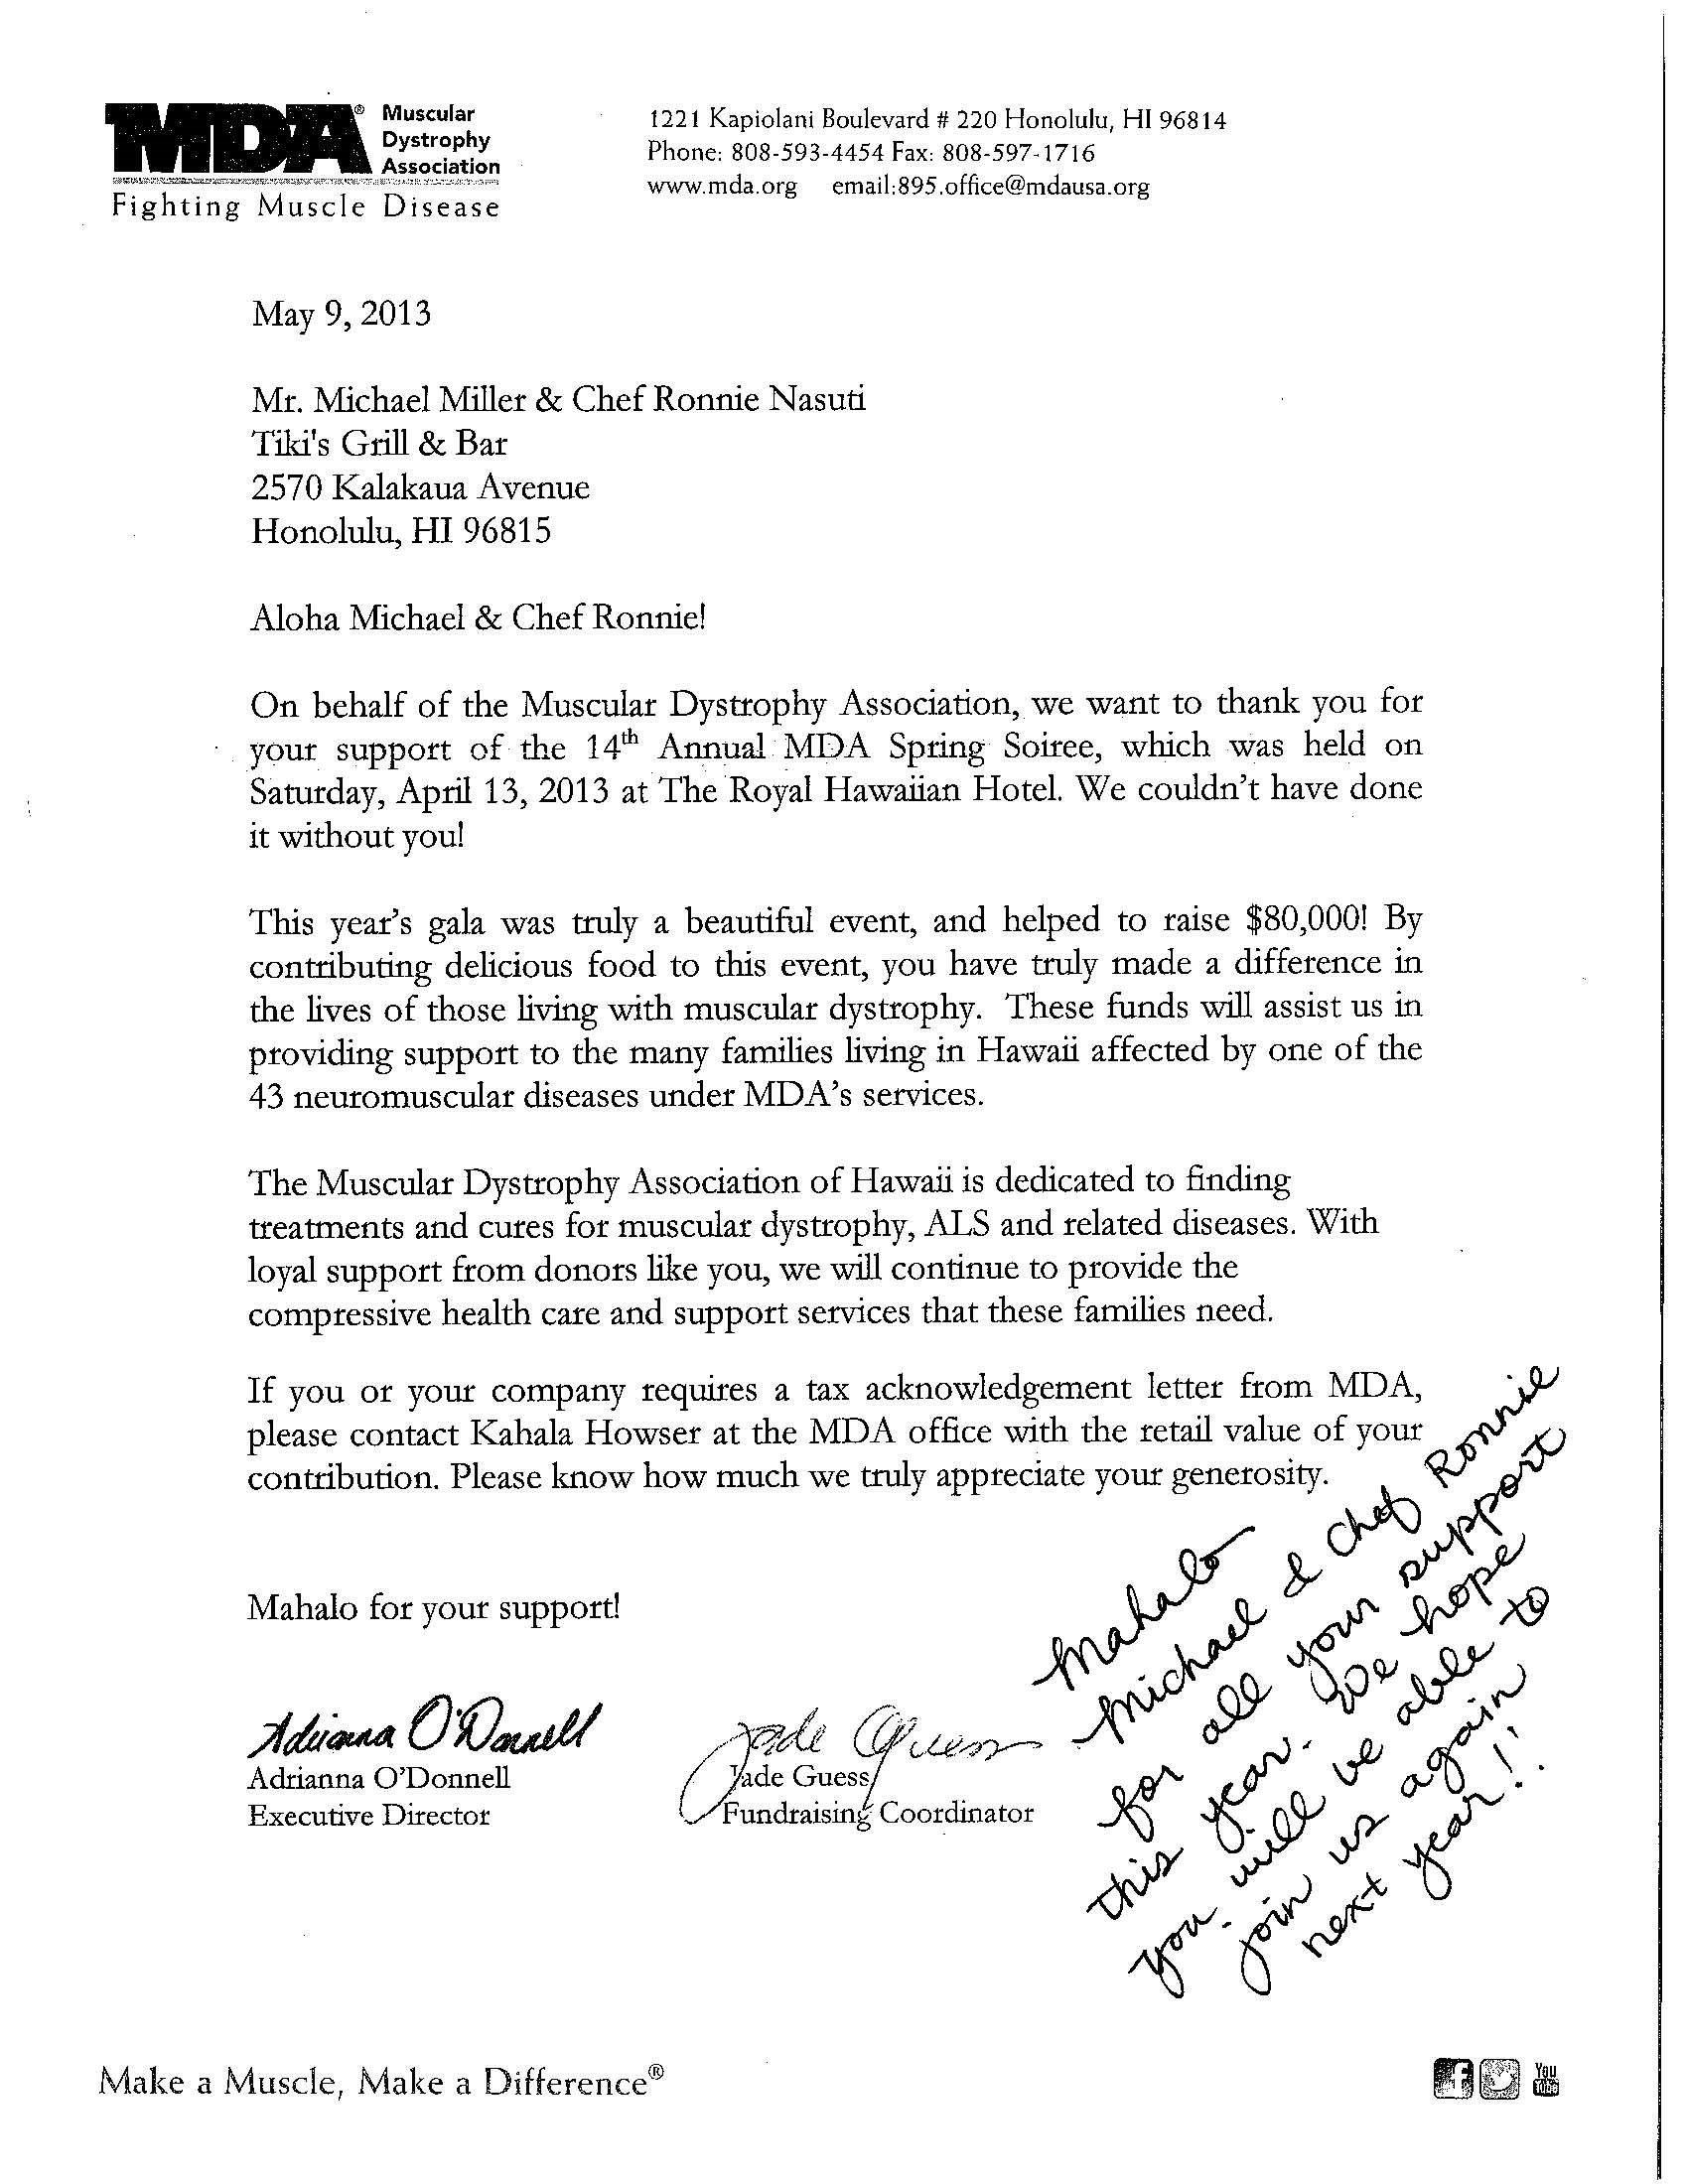 MDA® Muscular
Dystrophy
Association
Fighting Muscle Disease
1221 Kapiolani Boulevard # 220 Honolulu, HI 96814
Phone: 808-593-4454 Fax: 808-597-1716
www.mda.org email:895.office@mdausa.org
May 9, 2013
Mr. Michael Miller & Chef Ronnie Nasuti
Tiki's Grill & Bar
2570 Kalakaua Avenue
Honolulu, HI 96815
Aloha Michael & Chef Ronnie!
On behalf of the Muscular Dystrophy Association, we want to thank you for
your support of the 14th Annual MDA Spring Soiree, which was held on
Saturday, April 13, 2013 at The Royal Hawaiian Hotel. We couldn't have done
it without you!
This year's gala was truly a beautiful event, and helped to raise $80,000! By
contributing delicious food to this event, you have truly made a difference in
the lives of those living with muscular dystrophy. These funds will assist us in
providing support to the many families living in Hawaii affected by one of the
43 neuromuscular diseases under MDA's services.
The Muscular Dystrophy Association of Hawaii is dedicated to finding
treatments and cures for muscular dystrophy, ALS and related diseases. With
loyal support from donors like you, we will continue to provide the
compressive health care and support services that these families need.
If you or your company requires a tax acknowledgement letter from MDA,
please contact Kahala Howser at the MDA office with the retail value of your
contribution. Please know how much we truly appreciate your generosity.
Mahalo for your support!
Adrianna O'Donnell
Adrianna O'Donnell
Executive Director
Jade Guess
Jade Guess
Fundraising Coordinator
Mahalo
Michael & Chef Ronnie
for all your support
this year. We hope
you will be able to
join us again
next year!!
Make a Muscle, Make a Difference®
f
You
Tube